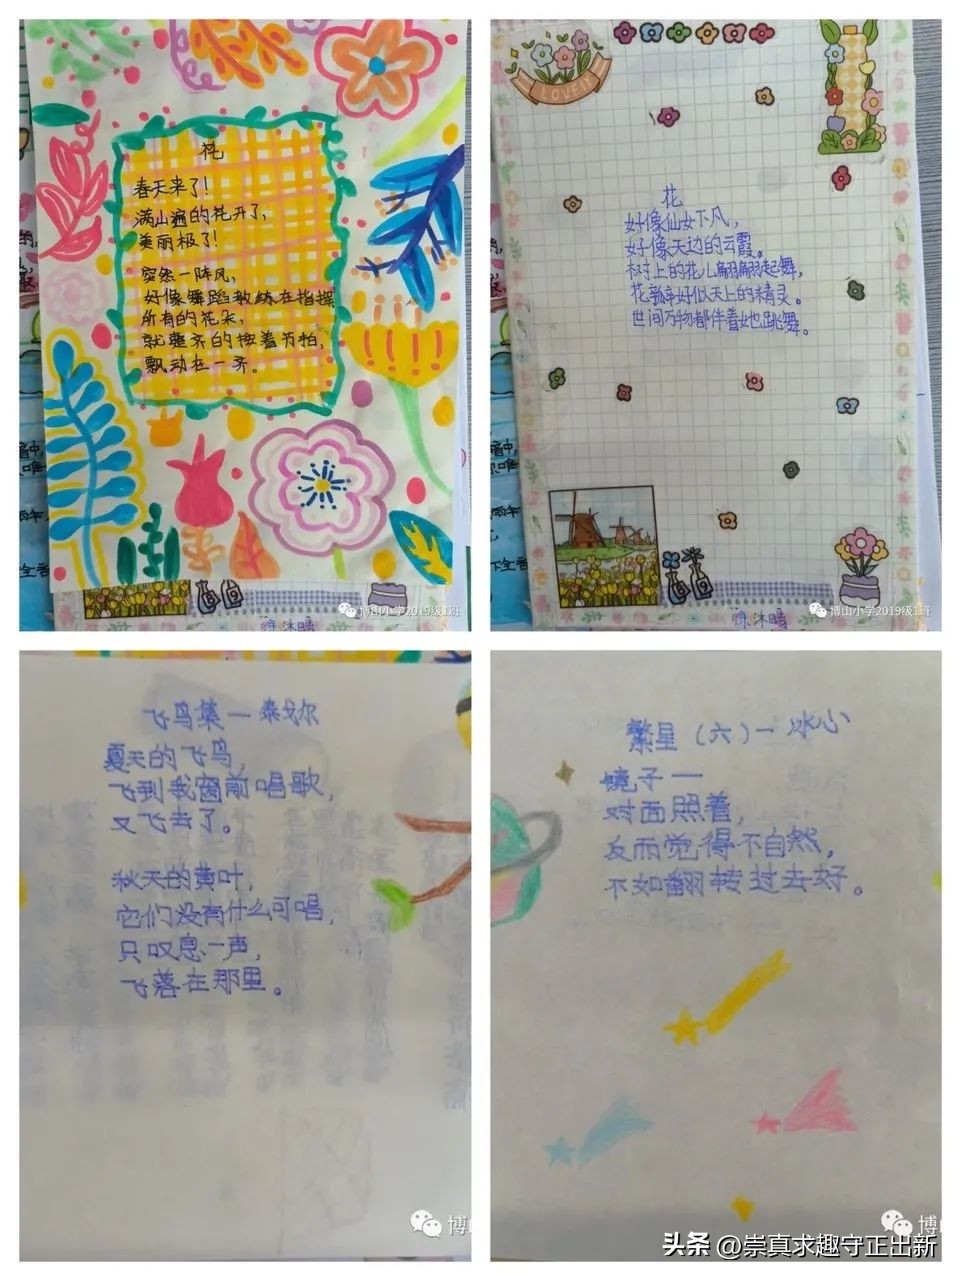 花
春天来了!
满山遍的花开了,
美丽极了!
突然一阵风,
好像舞蹈教练在指挥
所有的花朵,
就整齐的按着节拍,
飘动在一齐。
博山小学2019级1班
LOVE
花
好像仙女下凡,
好像天边的云霞。
树上的花儿翩翩起舞,
花瓣好似天上的精灵。
世间万物都伴着她跳舞。
博山小学2019级1班
沐晴
飞鸟集一泰戈尔
夏天的飞鸟,
飞到我窗前唱歌,
又飞去了。
秋天的黄叶,
它们没有什么可唱,
只叹息一声,
飞落在那里。
博
繁星(六)一冰心
镜子一
对面照着,
反而觉得不自然,
不如翻转过去好。
头条 @崇真求趣守正出新